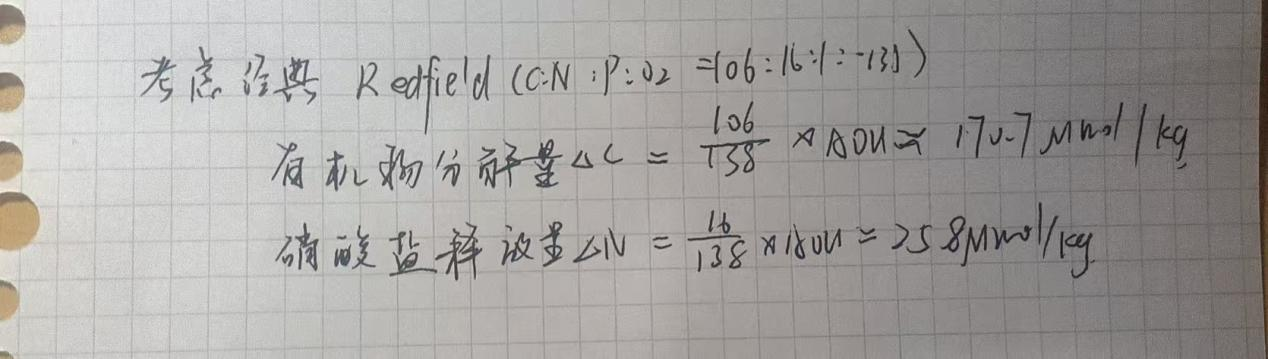 考虑经典 Redfield (C:N:P:O2 =106:16:1:-138)
有机物分解量△C = 106/138 × AOU ≈ 170.7 μmol/kg
硝酸盐释放量△N = 16/138 × AOU = 25.8μmol/kg